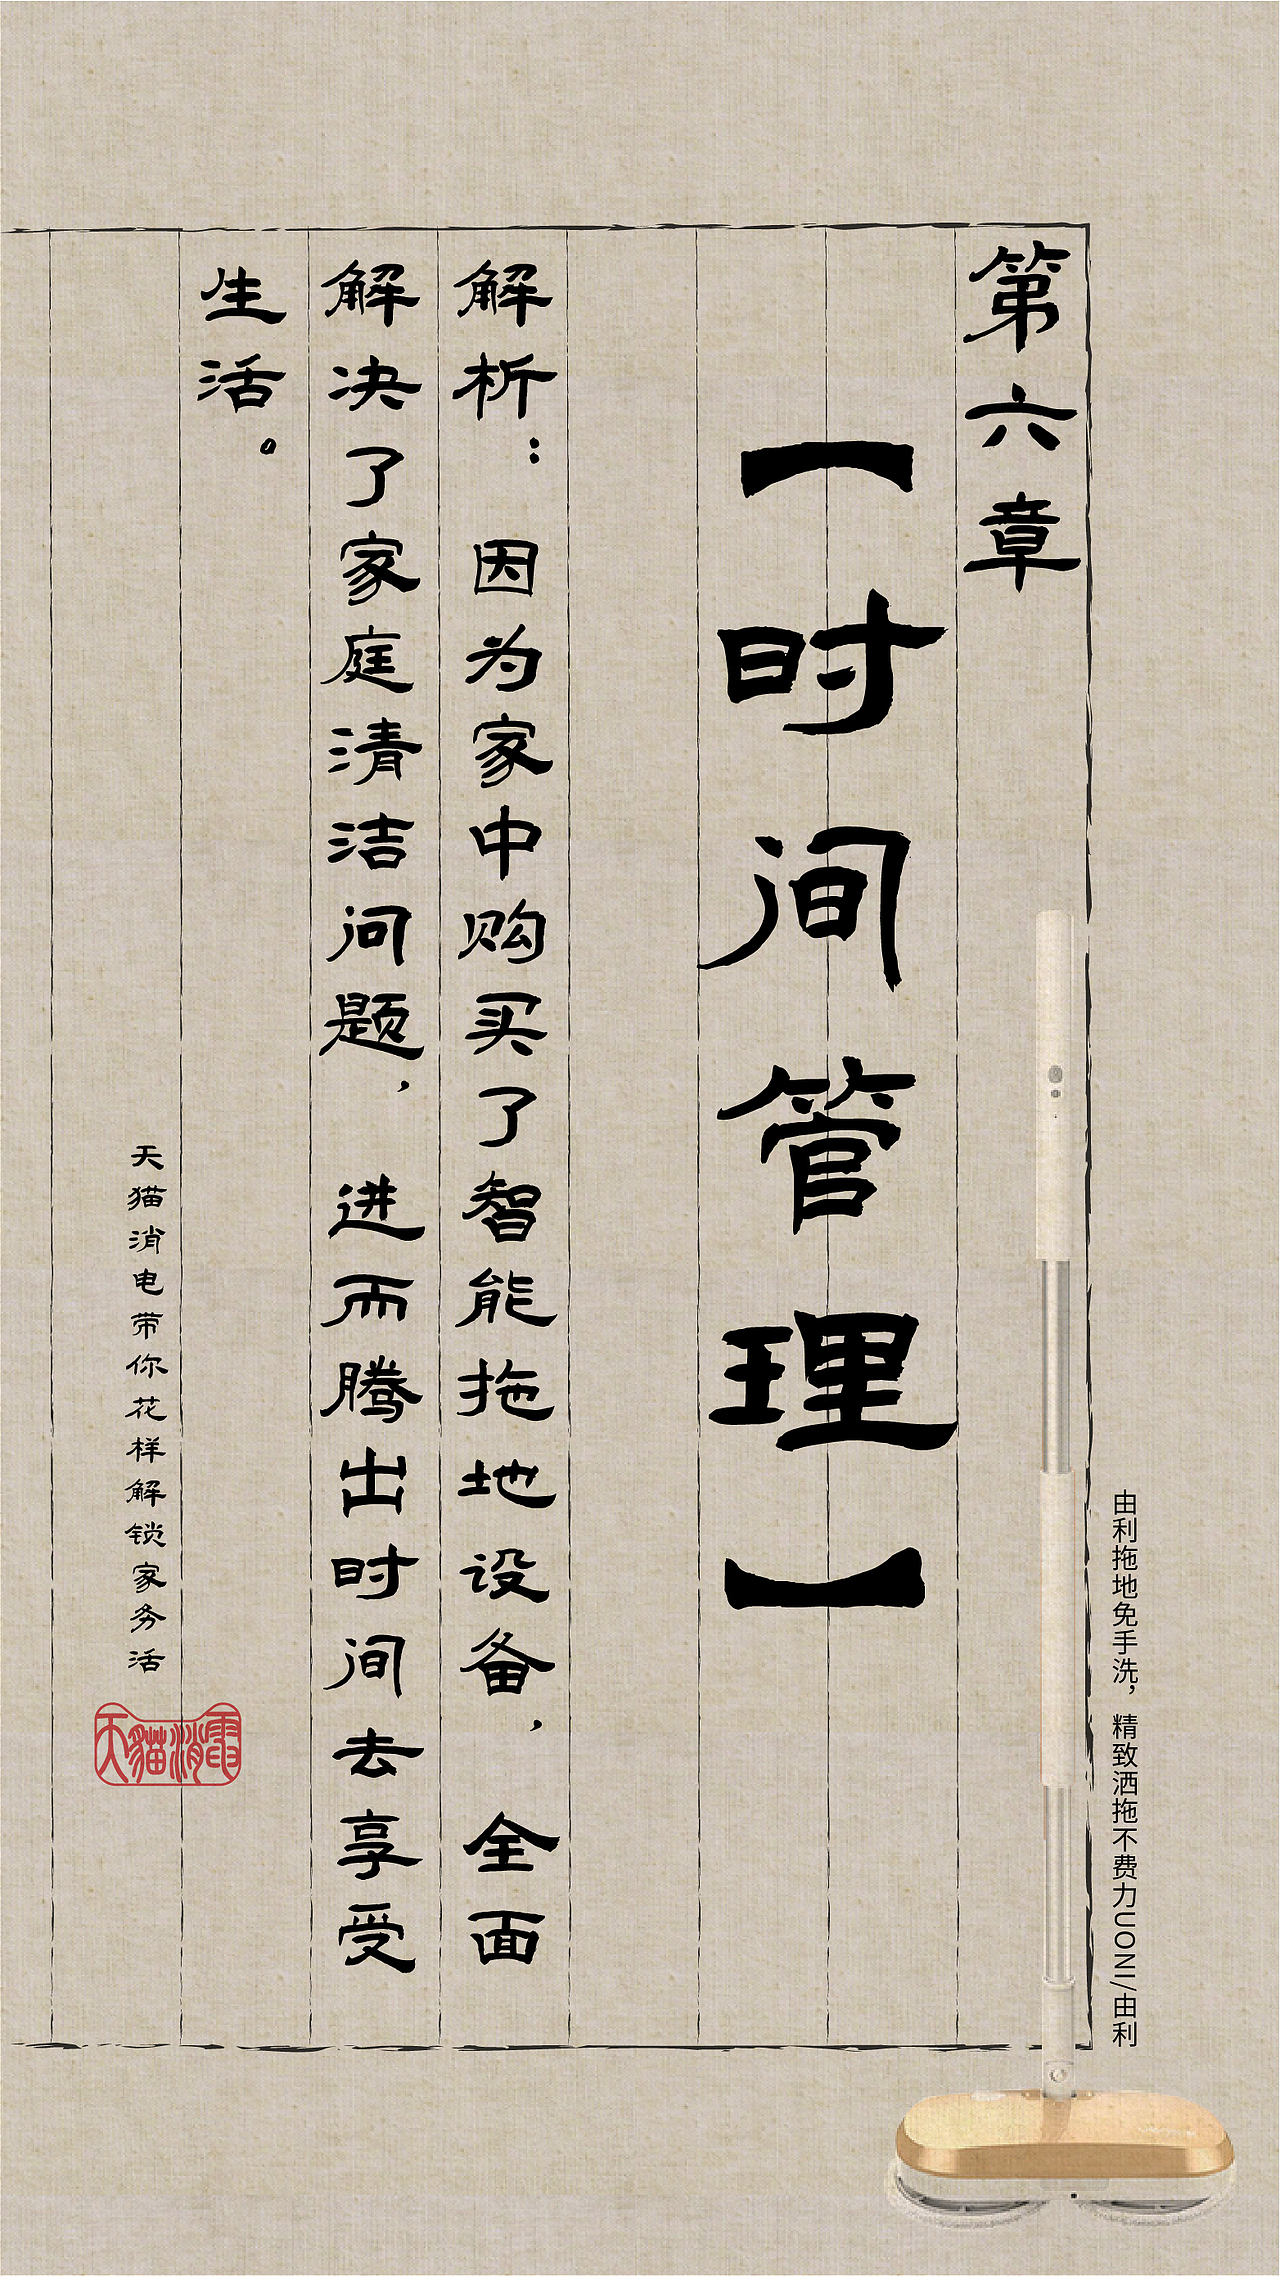 第六章
【时间管理】
解析：因为家中购买了智能拖地设备，全面
解决了家庭清洁问题，进而腾出时间去享受
生活。
天猫消电带你花样解锁家务活
天猫消電
由利拖地免手洗，精致洒拖不费力UONI/由利